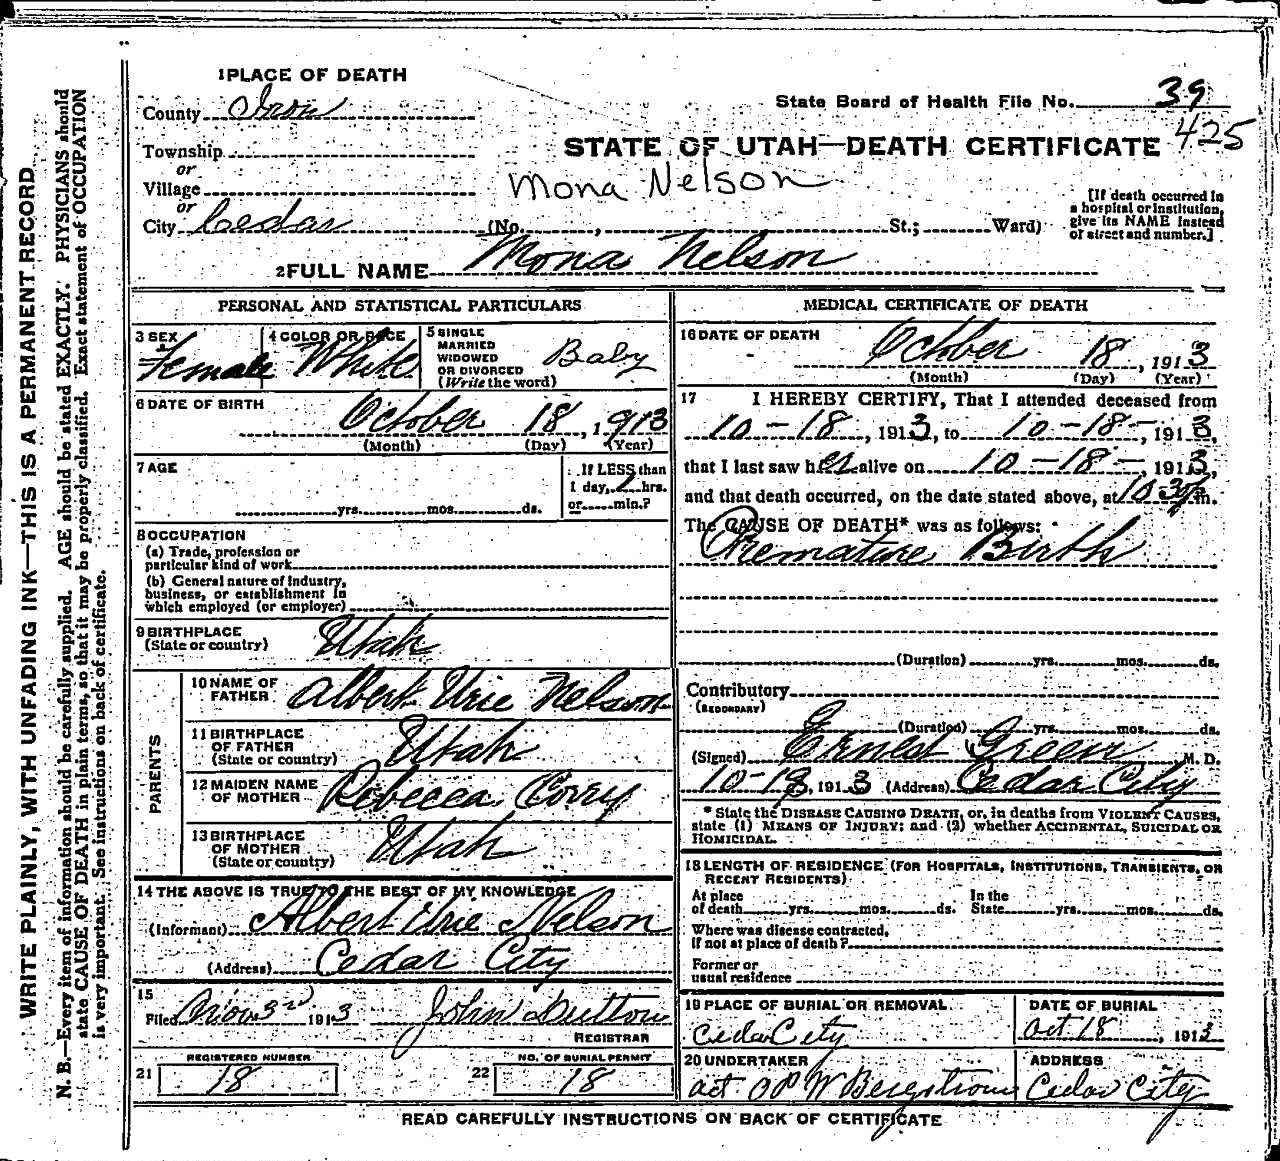 1 PLACE OF DEATH
County Iron
State Board of Health File No. 39
425
Township
or
Village
or
City Cedar (No. , St.; Ward)
STATE OF UTAH—DEATH CERTIFICATE
Mona Nelson
[If death occurred in
a hospital or institution,
give its NAME instead
of street and number.]
2 FULL NAME Mona Nelson
PERSONAL AND STATISTICAL PARTICULARS
3 SEX
Female
4 COLOR OR RACE
White
5 SINGLE
MARRIED
WIDOWED
OR DIVORCED
(Write the word)
Baby
6 DATE OF BIRTH
October 18, 1913
(Month) (Day) (Year)
7 AGE
yrs. mos. ds.
If LESS than
1 day, 2 hrs.
or min.?
8 OCCUPATION
(a) Trade, profession or
particular kind of work
(b) General nature of industry,
business, or establishment in
which employed (or employer)
9 BIRTHPLACE
(State or country)
Utah
PARENTS
10 NAME OF
FATHER
Albert Urie Nelson
11 BIRTHPLACE
OF FATHER
(State or country)
Utah
12 MAIDEN NAME
OF MOTHER
Rebecca Corry
13 BIRTHPLACE
OF MOTHER
(State or country)
Utah
14 THE ABOVE IS TRUE TO THE BEST OF MY KNOWLEDGE
(Informant) Albert Urie Nelson
(Address) Cedar City
15
Filed Nov. 3rd 1913 John S Dutton
REGISTRAR
REGISTERED NUMBER
21 18
NO. OF BURIAL PERMIT
22 18
MEDICAL CERTIFICATE OF DEATH
16 DATE OF DEATH
October 18, 1913
(Month) (Day) (Year)
17 I HEREBY CERTIFY, That I attended deceased from
10-18, 1913, to 10-18-, 1913,
that I last saw her alive on 10-18-, 1913,
and that death occurred, on the date stated above, at 10 30 p m.
The CAUSE OF DEATH* was as follows:
Premature Birth
(Duration) yrs. mos. ds.
Contributory
(SECONDARY)
(Duration) yrs. mos. ds.
(Signed) Ernest Green, M. D.
10-18, 1913 (Address) Cedar City
* State the DISEASE CAUSING DEATH, or, in deaths from VIOLENT CAUSES,
state (1) MEANS OF INJURY; and (2) whether ACCIDENTAL, SUICIDAL OR
HOMICIDAL.
18 LENGTH OF RESIDENCE (FOR HOSPITALS, INSTITUTIONS, TRANSIENTS, OR
RECENT RESIDENTS)
At place
of death yrs. mos. ds.
In the
State yrs. mos. ds.
Where was disease contracted,
if not at place of death?
Former or
usual residence
19 PLACE OF BURIAL OR REMOVAL
Cedar City
DATE OF BURIAL
Oct 18, 1913
20 UNDERTAKER
act O P W Bergstrom
ADDRESS
Cedar City
READ CAREFULLY INSTRUCTIONS ON BACK OF CERTIFICATE
WRITE PLAINLY, WITH UNFADING INK—THIS IS A PERMANENT RECORD
N. B.—Every item of information should be carefully supplied. AGE should be stated EXACTLY. PHYSICIANS should
state CAUSE OF DEATH in plain terms, so that it may be properly classified. Exact statement of OCCUPATION
is very important. See instructions on back of certificate.